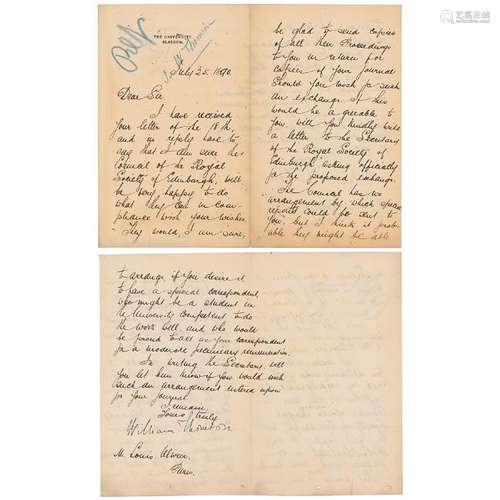 THE UNIVERSITY
GLASGOW
July 25. 1890.
Dear Sir
I have received
your letter of the 18th,
and in reply have to
say that I am sure the
Council of the Royal
Society of Edinburgh, will
be very happy to do
what they can in com-
pliance with your wishes
They would, I am sure,
be glad to send copies
of all their Proceedings
to you in return for
copies of your Journal
should you wish for such
an exchange. If this
would be agreeable to
you will you kindly write
a letter to the Secretary
of the Royal Society of
Edinburgh asking officially
for the proposed exchange.
The Council has no
arrangement by which special
reports could be sent to
you, but I think it prob-
able they might be able
to arrange if you desire it
to have a special correspondent,
who might be a student in
the University competent to do
the work well, and who would
be proud to act as your correspondent
for a moderate pecuniary remuneration.
In writing the Secretary will
you let him know if you would wish
such an arrangement entered upon
for your Journal
I remain
Yours truly
William Thomson
M. Louis Olivier
Paris.